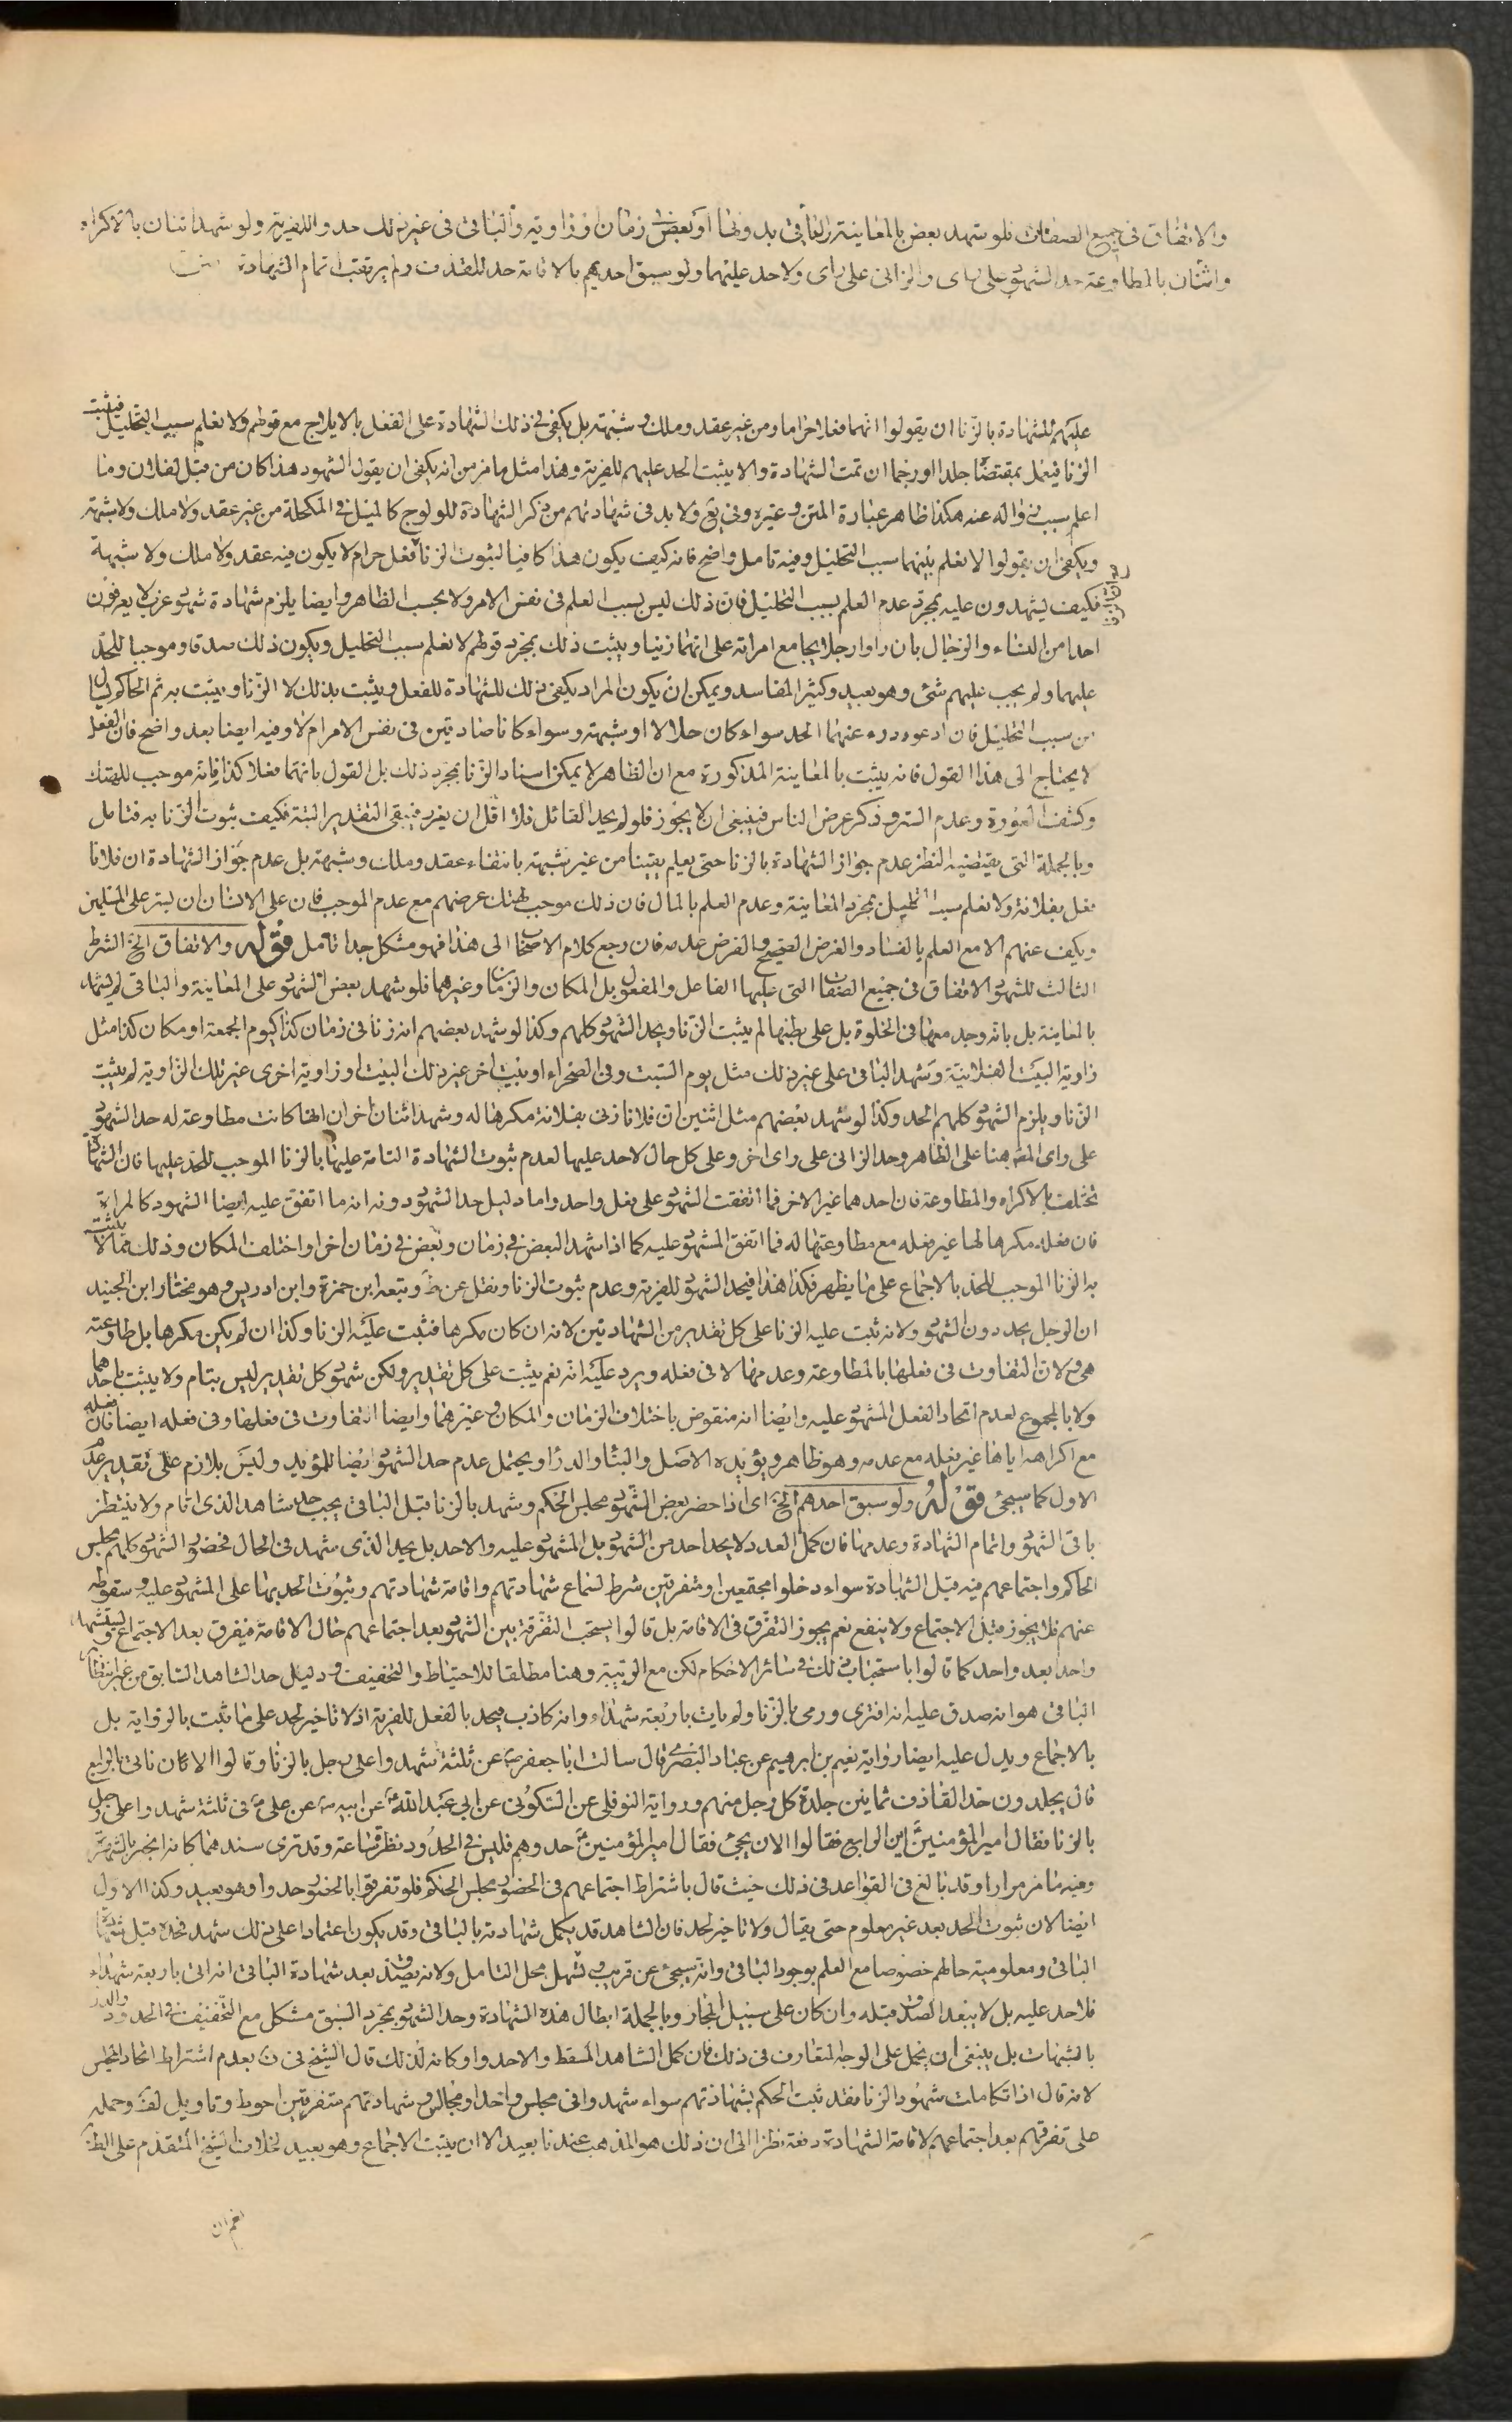 والاتفاق في جميع الصفات فلو شهد بعض بالمعاينة والباقي بدونها او بعض في زمان او زاوية والباقي في غير ذلك حدوا للفرية ولو شهد اثنان بالاكراه
واثنان بالمطاوعة حد الشهود على راى والزاني على راى ولا حد عليها ولو سبق احدهم بالاقامة حد للقذف ولم يرتقب اتمام الشهادة
عليهم للشهادة بالزنا ان يقولوا انهما فعلا حراما ومن غير عقد وملك وشبهة بل يكفي في ذلك الشهادة على الفعل بالايلاج مع قولهم ولا نعلم سبب التحليل فيثبت
الزنا فيعمل بمقتضاه جلدا او رجما ان تمت الشهادة والا يثبت الحد عليهم للفرية وهذا مثل ما مر من انه يكفي ان يقول الشهود هذا كان من قبل لفلان وما
اعلم سبب زواله عنه هكذا ظاهر عبارة المتن وغيره وفي يع ولا بد في شهادتهم من ذكر الشهادة للولوج كالميل في المكحلة من غير عقد ولا ملك ولا شبهة
ويكفي ان يقولوا لا نعلم بينهما سبب التحليل وفيه تامل واضح فانه كيف يكون هذا كافيا لثبوت الزنا فعل حرام لا يكون فيه عقد ولا ملك ولا شبهة
فكيف يشهدون عليه بمجرد عدم العلم بسبب التحليل فان ذلك ليس بسبب العلم في نفس الامر ولا بحسب الظاهر وايضا يلزم شهادة شهود غرب لا يعرفون
احدا من النساء والرجال بان راوا رجلا يجامع امراته على انهما زنيا ويثبت ذلك بمجرد قولهم لا نعلم سبب التحليل ويكون ذلك صدقا وموجبا للحد
عليهما ولم يجب عليهم شئ وهو بعيد وكثير المفاسد ويمكن ان يكون المراد يكفي ذلك للشهادة للفعل ويثبت بذلك لا الزنا ويثبت به ثم الحاكم يسال
من سبب التحليل فان ادعوه درء عنهما الحد سواء كان حلالا او شبهة وسواء كانا صادقين في نفس الامر ام لا وفيه ايضا بعد واضح فان الفعل
لا يحتاج الى هذا القول فانه يثبت بالمعاينة المذكورة مع ان الظاهر لا يمكن اسناد الزنا بمجرد ذلك بل القول بانهما فعلا كذا فانه موجب للهتك
وكشف العورة وعدم الستر وذكر عرض الناس فينبغي ان لا يجوز فلو لم يحد القائل فلا اقل ان يعزر فيبقى التقدير البتة فكيف ثبوت الزنا به فتامل
وبالجملة التي يقتضيه النظر عدم جواز الشهادة بالزنا حتى يعلم يقينا من غير شبهة بانتفاء عقد وملك وشبهة بل عدم جواز الشهادة ان فلانا
فعل بفلانة ولا نعلم سبب التحليل بمجرد المعاينة وعدم العلم بالمال فان ذلك موجب لهتك عرضهم مع عدم الموجب فان على الانسان ان يستر على المسلمين
ويكف عنهم الا مع العلم بالفساد والغرض الصحيح والفرض عدمه فان رجع كلام الاصحاب الى هذا فهو مشكل جدا تامل قوله والاتفاق الخ الشرط
الثالث للشهود الاتفاق في جميع الصفات التي عليها الفاعل والمفعول بل المكان والزمان وغيرهما فلو شهد بعض الشهود على المعاينة والباقي لم يشهد
بالمعاينة بل بانه وجد معها في الخلوة بل على بطنها لم يثبت الزنا ويحد الشهود كلهم وكذا لو شهد بعضهم انه زنا في زمان كذا كيوم الجمعة او مكان كذا مثل
زاوية البيت الفلانية وشهد الباقي على غير ذلك مثل يوم السبت وفي الصحراء او بيت اخر غير ذلك البيت او زاوية اخرى غير تلك الزاوية لم يثبت
الزنا ويلزم الشهود كلهم الحد وكذا لو شهد بعضهم مثل اثنين ان فلانا زنى بفلانة مكرها له وشهد اثنان اخران انها كانت مطاوعة له حد الشهود
على راى المصه هنا على الظاهر وحد الزاني على راى اخر وعلى كل حال لا حد عليها لعدم ثبوت الشهادة التامة عليها بالزنا الموجب للحد عليها فان الشهادة
تختلف بالاكراه والمطاوعة فان احدهما غير الاخر فما اتفقت الشهود على فعل واحد واما دليل حد الشهود دونه انه ما اتفق عليه ايضا الشهود كالمراة
فان فعله مكرها لها غير فعله مع مطاوعتها له فما اتفق المشهود عليه كما اذا شهد البعض في زمان وبعض في زمان اخر او اختلف المكان وذلك مما لا يثبت
به الزنا الموجب للحد بالاجماع على ما يظهر فكذا هذا فيحد الشهود للفرية وعدم ثبوت الزنا ونقل عن ط وتبعه ابن حمزة وابن ادريس وهو مختار ابن الجنيد
ان الرجل يحد دون الشهود ولانه ثبت عليه الزنا على كل تقدير من الشهادتين لانه ان كان مكرها فثبت عليه الزنا وكذا ان لم يكن مكرها بل طاوعته
هي ولان التفاوت في فعلها بالمطاوعة وعدمها لا في فعله ويرد عليه انه نعم يثبت على كل تقدير ولكن شهود كل تقدير ليس بتام ولا يثبت باحدهما
ولا بالمجموع لعدم اتحاد الفعل المشهود عليه وايضا انه منقوض باختلاف الزمان والمكان وغيرهما وايضا التفاوت في فعلها وفي فعله ايضا فان فعله
مع اكراهه اياها غير فعله مع عدمه وهو ظاهر ويؤيده الاصل والبناء والدرء ويحتمل عدم حد الشهود ايضا للمؤيد وليس بلازم على تقدير عدم
الاول كما سيجئ قوله ولو سبق احدهم الخ اى اذا حضر بعض الشهود مجلس الحكم وشهد بالزنا قبل الباقي يجب حد شاهد الذى اقام ولا ينتظر
باقي الشهود واتمام الشهادة وعدمها فان كمل العدد لا يحد احد من الشهود بل المشهود عليه والا حد بل يحد الذى شهد في الحال فحضور الشهود كلهم مجلس
الحاكم واجتماعهم فيه قبل الشهادة سواء دخلوا مجتمعين او متفرقين شرط لسماع شهادتهم واقامة شهادتهم وثبوت الحد بها على المشهود عليه وسقوطه
عنهم فلا يجوز قبل الاجتماع ولا ينفع نعم يجوز التفرق في الاقامة بل قالوا يستحب التفرقة بين الشهود بعد اجتماعهم حال الاقامة فيفرق بعد الاجتماع ويستشهد
واحدا بعد واحد كما قالوا باستحباب ذلك في سائر الاحكام لكن مع الريبة وهنا مطلقا للاحتياط والتخفيف ودليل حد الشاهد السابق من غير انتظار
الباقي هو انه صدق عليه انه افترى ورمى بالزنا ولم يات باربعة شهداء وانه كاذب فيحد بالفعل للفرية اذ لا تاخير لحد على ما ثبت بالرواية بل
بالاجماع ويدل عليه ايضا رواية نعيم بن ابرهيم عن عباد البصرى قال سالت ابا جعفر ع عن ثلثة شهدوا على رجل بالزنا وقالوا الان ناتي بالرابع
قال يجلدون حد القاذف ثمانين جلدة كل رجل منهم ورواية النوفلي عن السكوني عن ابي عبد الله ع عن ابيه عن علي ع في ثلثة شهدوا على رجل
بالزنا فقال امير المؤمنين ع اين الرابع فقالوا الان يجئ فقال امير المؤمنين ع حدوهم فليس في الحدود نظر ساعة وقد ترى سندهما كانه انجبر بالشهرة
وفيه ما مر مرارا وقد بالغ في القواعد في ذلك حيث قال باشتراط اجتماعهم في الحضور مجلس الحكم فلو تفرقوا بالحضور حدوا وهو بعيد وكذا الاول
ايضا لان ثبوت الحد بعد غير معلوم حتى يقال ولا تاخير لحد فان الشاهد قد يكمل شهادته بالباقي وقد يكون اعتمادا على ذلك شهد فحده قبل شهادة
الباقي ومعلومية حالهم خصوصا مع العلم بوجود الباقي وانه سيجئ عن قريب وتسهل محل التامل ولانه يصدق بعد شهادة الباقي انه اتى باربعة شهداء
فلا حد عليه بل لا يبعد الصدق قبله وان كان على سبيل المجاز وبالجملة ابطال هذه الشهادة وحد الشهود بمجرد السبق مشكل مع التخفيف في الحدود والدرء
بالشبهات بل ينبغي ان يحمل على الوجه المتعارف في ذلك فان كمل الشاهد المسقط والا حدوا وكانه لذلك قال الشيخ في ف بعدم اشتراط اتحاد المجلس
لانه قال اذا تكاملت شهود الزنا فقد ثبت الحكم بشهادتهم سواء شهدوا في مجلس واحد او مجالس وشهادتهم متفرقين احوط وتاويل لف وحمله
على تفرقهم بعد اجتماعهم لاقامة الشهادة دفعة نظرا الى ان ذلك هو المذهب عندنا بعيد الا ان يثبت الاجماع وهو بعيد لخلاف الشيخ المتقدم على الظاهر
نعم ان